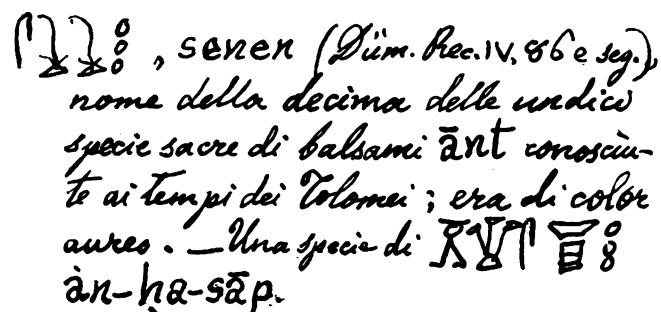 , senen (Düm. Rec. IV, 86 e seg.),
nome della decima delle undici
specie sacre di balsami ānt conosciu-
te ai tempi dei Tolomei; era di color
aureo. — Una specie di
àn-ḥa-sāp.